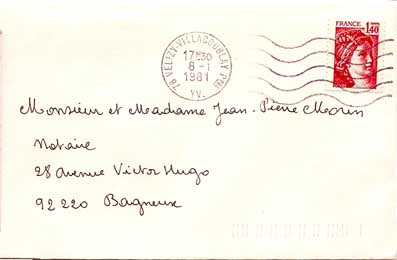 78 VELIZY-VILLACOUBLAY PPAL
17H30
8-1
1981
YV.
FRANCE
1,40
Monsieur et Madame Jean-Pierre Morin
Notaire
28 Avenue Victor Hugo
92220 Bagneux